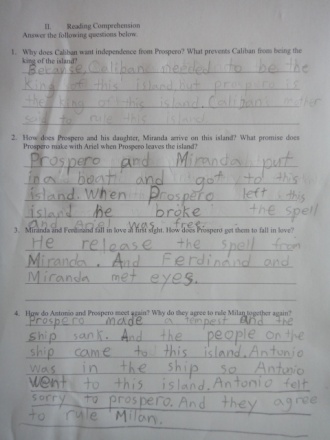 II. Reading Comprehension
Answer the following questions below.
1. Why does Caliban want independence from Prospero? What prevents Caliban from being the
king of the island?
Because, Calibane needed to be the
king of this island but prospero is
the king of this island. Caliban mother
said to rule this island.
2. How does Prospero and his daughter, Miranda arrive on this island? What promise does
Prospero make with Ariel when Prospero leaves the island?
Prospero and Miranda put
in a boat and got to this
island. When Prospero left this
island he broke the spell
And Ariel was free.
3. Miranda and Ferdinand fall in love at first sight. How does Prospero get them to fall in love?
He release the spell from
Miranda. And Ferdinand and
Miranda met eyes.
4. How do Antonio and Prospero meet again? Why do they agree to rule Milan together again?
Prospero made a tempest And the
ship sank. And the people on the
ship came to this island. Antonio
was in the ship so Antonio
went to this island. Antonio felt
sorry to prospero. And they agree
to rule Milan.